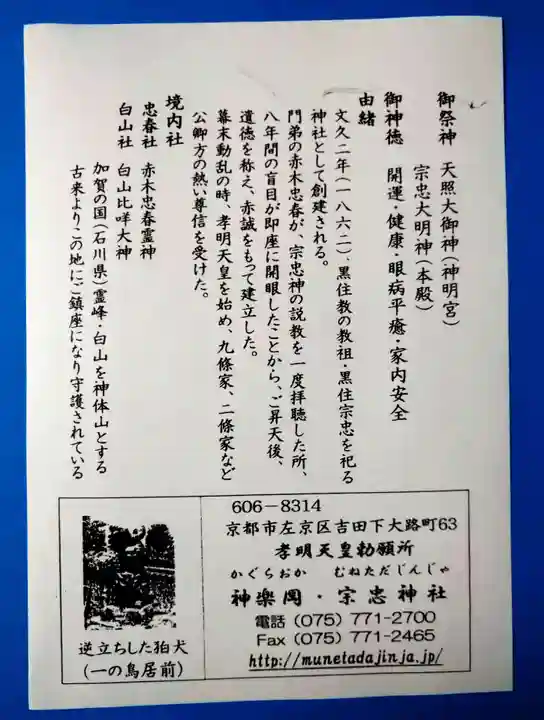 御祭神　天照大御神(神明宮)
宗忠大明神(本殿)
御神徳　開運・健康・眼病平癒・家内安全
由緒
文久二年(一八六二)・黒住教の教祖・黒住宗忠を祀る
神社として創建される。
門弟の赤木忠春が、宗忠神の説教を一度拝聴した所、
八年間の盲目が即座に開眼したことから、ご昇天後、
遺徳を称え、赤誠をもって建立した。
幕末動乱の時、孝明天皇を始め、九條家、二條家など
公卿方の熱い尊信を受けた。
境内社
忠春社　赤木忠春霊神
白山社　白山比咩大神
加賀の国(石川県)霊峰・白山を神体山とする
古来よりこの地にご鎮座になり守護されている
逆立ちした狛犬
(一の鳥居前)
606-8314
京都市左京区吉田下大路町63
孝明天皇勅願所
かぐらおか　むねただじんじゃ
神楽岡・宗忠神社
電話 (075) 771-2700
Fax (075) 771-2465
http://munetadajinja.jp/